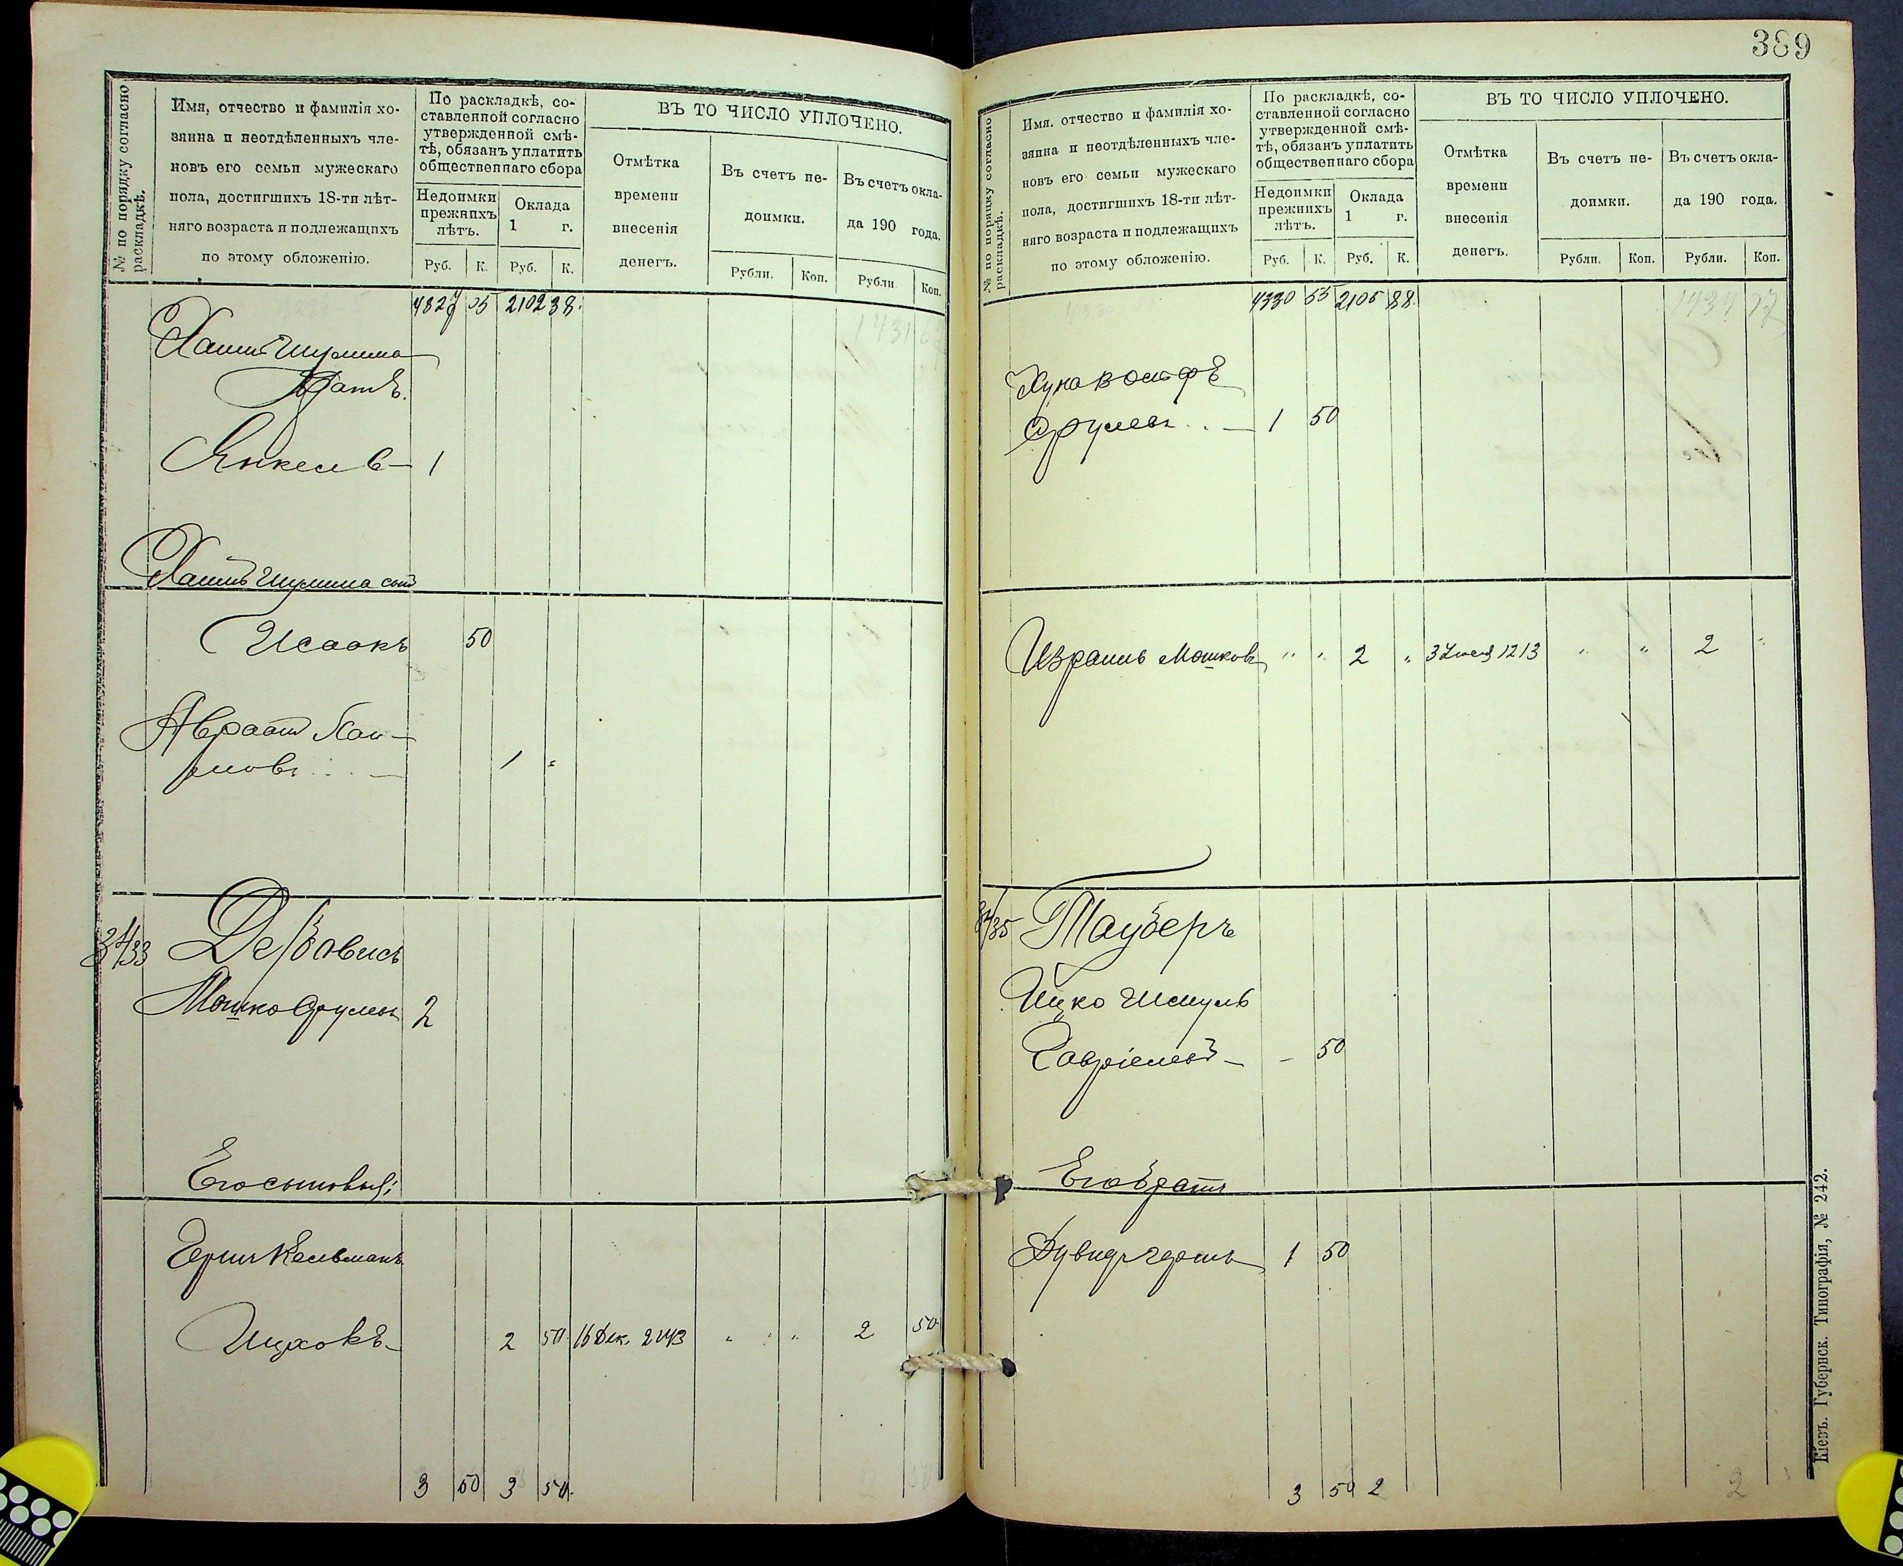 № по порядку согласно
раскладкѣ.
Имя, отчество и фамилія хо-
зяина и неотдѣленныхъ чле-
новъ его семьи мужескаго
пола, достигшихъ 18-ти лѣт-
няго возраста и подлежащихъ
по этому обложенію.
По раскладкѣ, со-
ставленной согласно
утвержденной смѣ-
тѣ, обязанъ уплатить
общественнаго сбора
Недоимки
прежнихъ
лѣтъ.
Оклада
1 г.
Руб. К. Руб. К.
ВЪ ТО ЧИСЛО УПЛОЧЕНО.
Отмѣтка
времени
внесенія
денегъ.
Въ счетъ не-
доимки.
Въ счетъ окла-
да 190 года.
Рубли. Коп. Рубли Коп.
4827 05 2102 38.
Хаимъ Шулима
братъ.
Янкель — 1
Хаимъ Шулима сынъ
Исаакъ 50
Авраамъ Хаи-
мовъ 1 "
3433 Лейбовисъ
Мошко Сруловъ 2
Его сыновья:
Гершъ Кельманъ
Ицхокъ — 2 50 16 Дек. 2443 " " 2 50
3 50 3 50.
389
№ по порядку согласно
раскладкѣ.
Имя, отчество и фамилія хо-
зяина и неотдѣленныхъ чле-
новъ его семьи мужескаго
пола, достигшихъ 18-ти лѣт-
няго возраста и подлежащихъ
по этому обложенію.
По раскладкѣ, со-
ставленной согласно
утвержденной смѣ-
тѣ, обязанъ уплатить
общественнаго сбора
Недоимки
прежнихъ
лѣтъ.
Оклада
1 г.
Руб. К. Руб. К.
ВЪ ТО ЧИСЛО УПЛОЧЕНО.
Отмѣтка
времени
внесенія
денегъ.
Въ счетъ не-
доимки.
Въ счетъ окла-
да 190 года.
Рубли. Коп. Рубли. Коп.
4330 55 2105 88 1434 17
Хуна Вольфъ
Сруловъ — 1 50
Израиль Мошковъ " " 2 " 3 1213 " " 2 "
3435 Тауберъ
Ицко Шмуль
Гавріеловъ — - 50
Его братъ
Дувидъ Гершъ 1 50
3 50 2 2
Кіевъ. Губернск. Типографія, № 242.